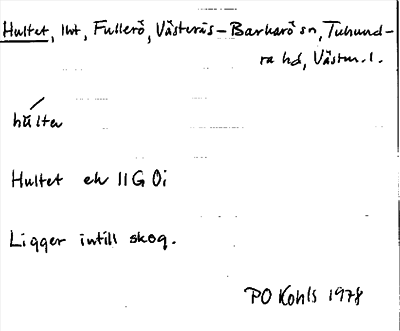 Hultet, lht, Fullerö, Västerås-Barkarö sn, Tuhund-
ra hd, Västm.l.
húlter
Hultet ek 11G 0i
Ligger intill skog.
PO Kohls 1978